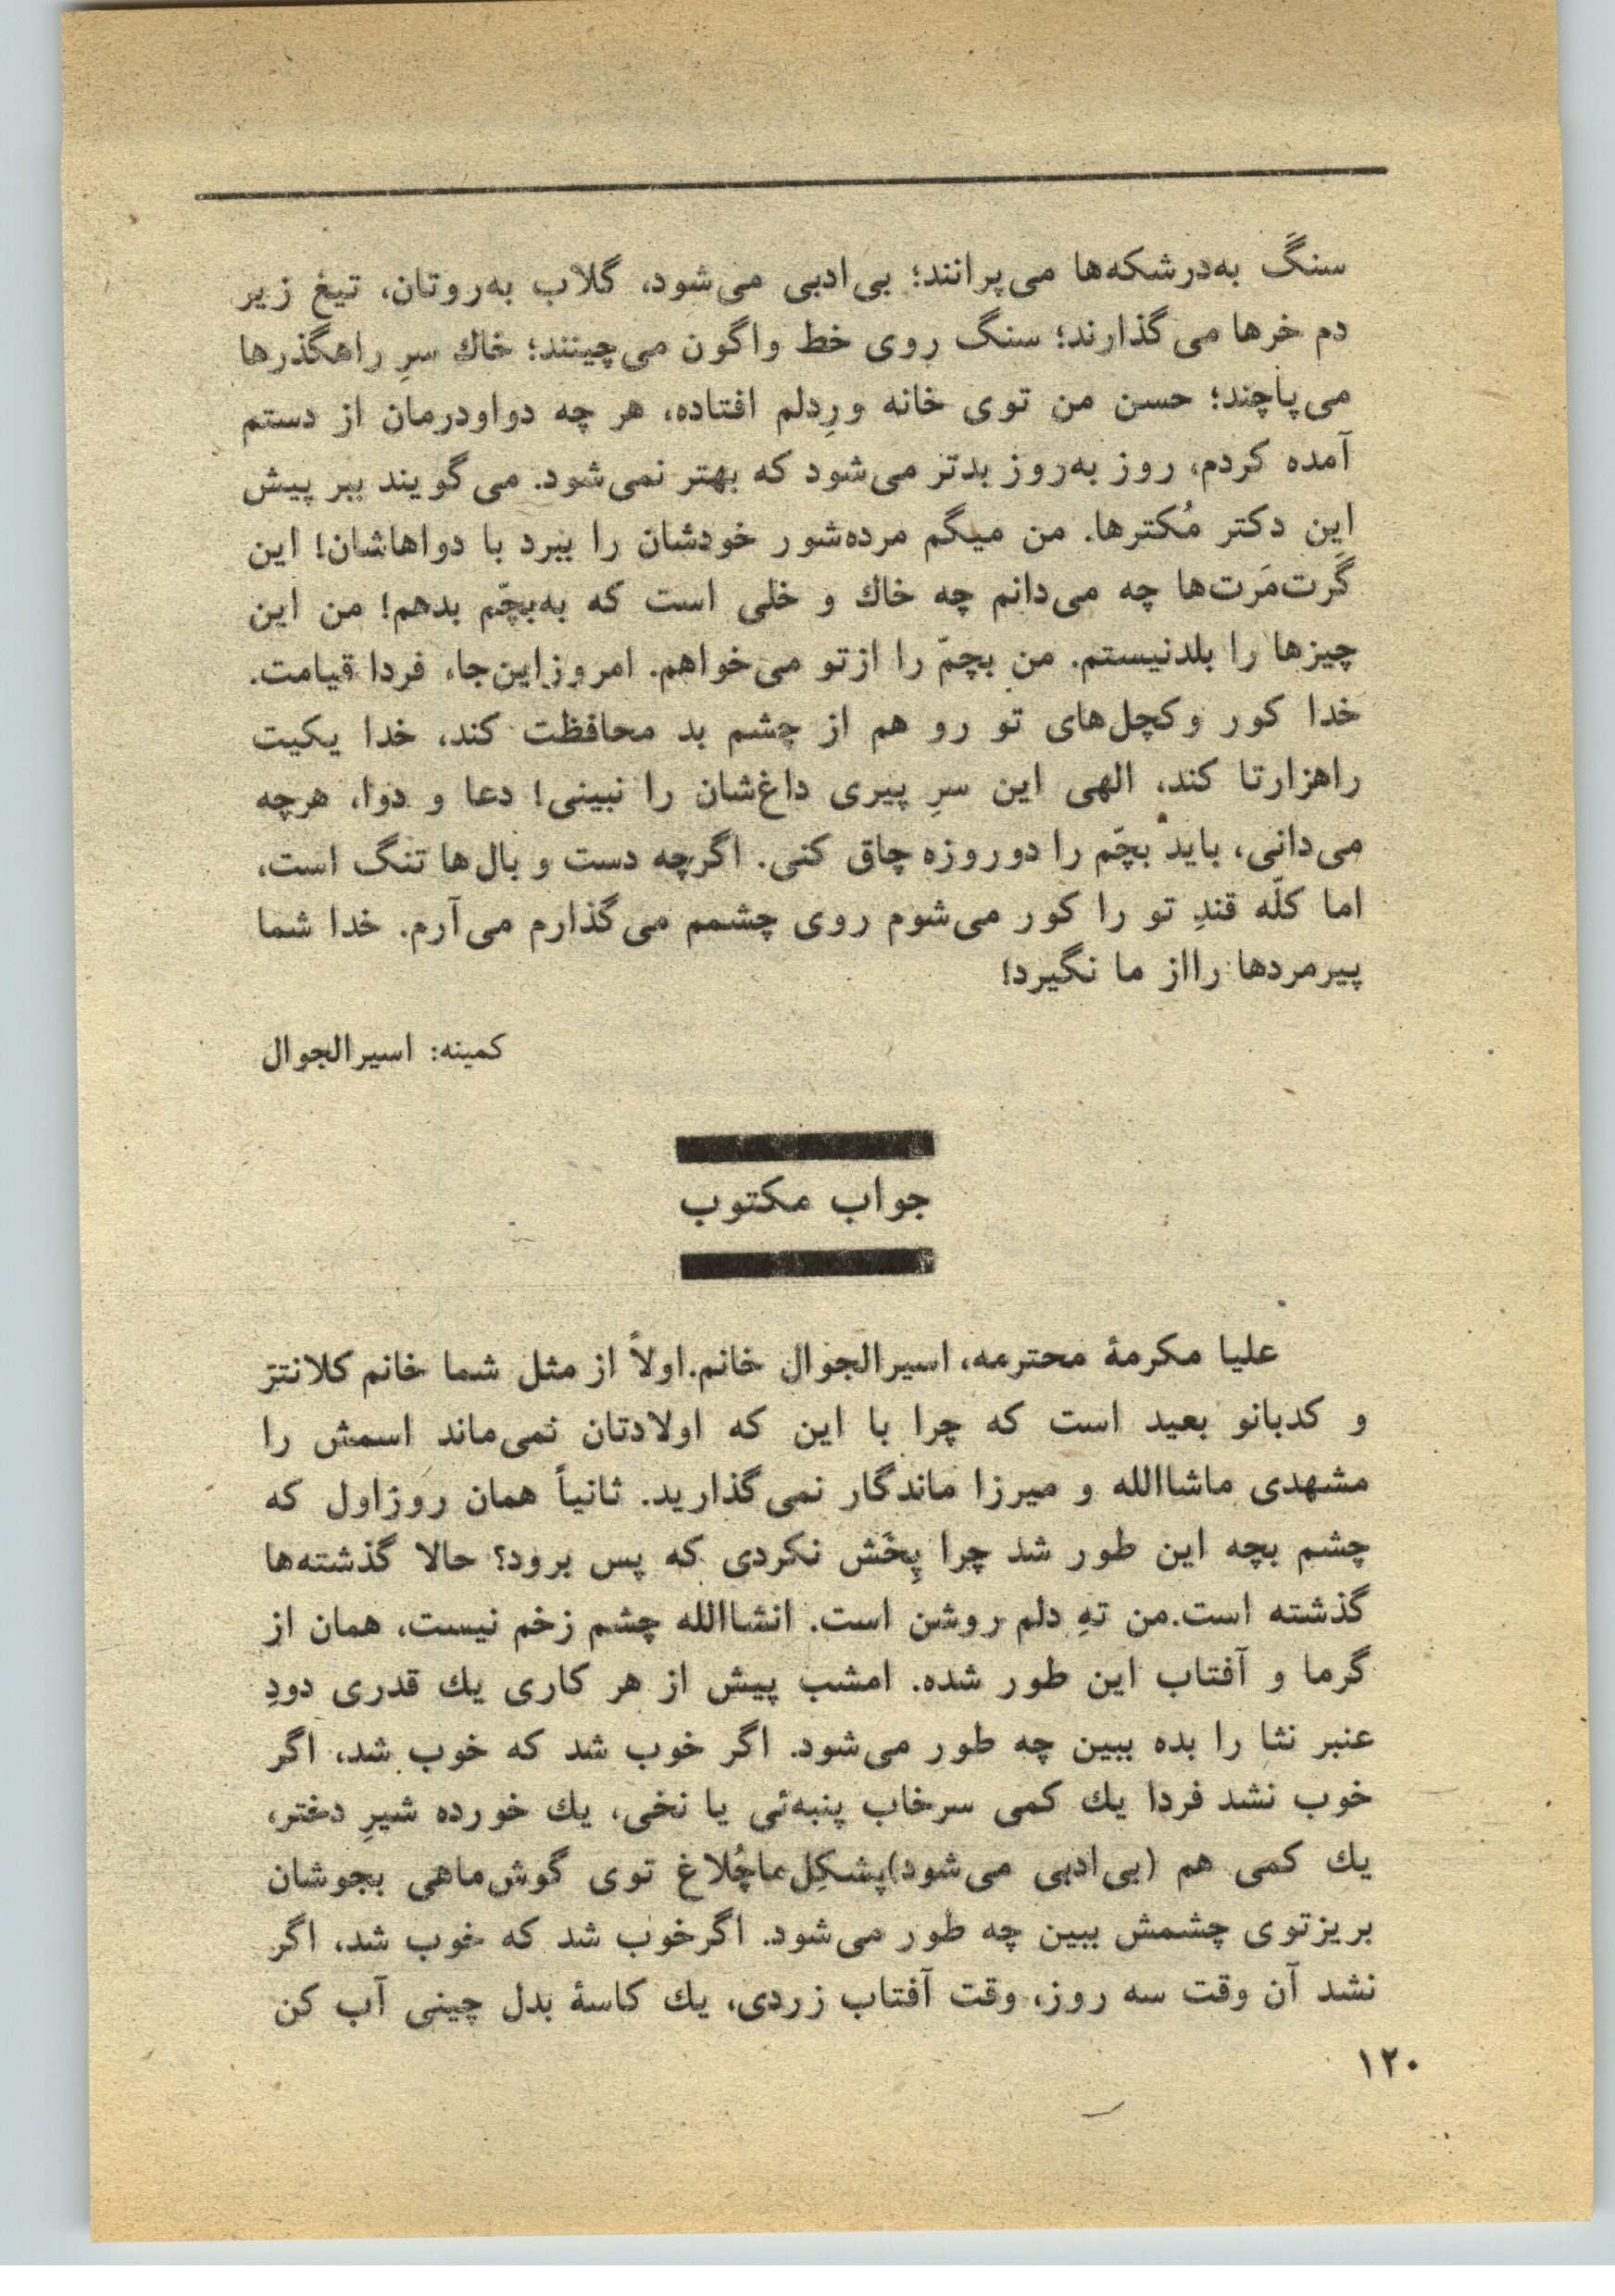 سنگ به‌درشکه‌ها می‌پرانند؛ بی‌ادبی می‌شود، گلاب به‌روتان، تیغ زیر
دم خرها می‌گذارند؛ سنگ روی خط واگون می‌چینند؛ خاك سرِ راهگذرها
می‌پاچند؛ حسن من توی خانه ورِدلم افتاده، هر چه دواودرمان از دستم
آمده کردم، روز به‌روز بدتر می‌شود که بهتر نمی‌شود. می‌گویند ببر پیش
این دکتر مُکترها. من میگم مرده‌شور خودشان را ببرد با دواهاشان! این
گَرت‌مَرت‌ها چه می‌دانم چه خاك و خلی است که به‌بچّم بدهم! من این
چیزها را بلدنیستم. من بچمّ را ازتو می‌خواهم. امروزاین‌جا، فردا قیامت.
خدا کور وکچل‌های تو رو هم از چشم بد محافظت کند، خدا یکیت
راهزارتا کند، الهی این سرِ پیری داغ‌شان را نبینی! دعا و دوا، هرچه
می‌دانی، باید بچّم را دوروزه چاق کنی. اگرچه دست و بال‌ها تنگ است،
اما کلّه قندِ تو را کور می‌شوم روی چشمم می‌گذارم می‌آرم. خدا شما
پیرمردها رااز ما نگیرد!
کمینه: اسیرالجوال
جواب مکتوب
علیا مکرمهٔ محترمه، اسیرالجوال خانم.اولاً از مثل شما خانم کلانتر
و کدبانو بعید است که چرا با این که اولادتان نمی‌ماند اسمش را
مشهدی ماشاالله و میرزا ماندگار نمی‌گذارید. ثانیاً همان روزاول که
چشم بچه این طور شد چرا پِخَش نکردی که پس برود؟ حالا گذشته‌ها
گذشته است.من تهِ دلم روشن است. انشاالله چشم زخم نیست، همان از
گرما و آفتاب این طور شده. امشب پیش از هر کاری یك قدری دودِ
عنبر نثا را بده ببین چه طور می‌شود. اگر خوب شد که خوب شد، اگر
خوب نشد فردا یك کمی سرخاب پنبه‌ئی یا نخی، یك خورده شیرِ دختر،
یك کمی هم (بی‌ادبی می‌شود)پشکِل‌ماچُلاغ توی گوش‌ماهی بجوشان
بریزتوی چشمش ببین چه طور می‌شود. اگرخوب شد که خوب شد، اگر
نشد آن وقت سه روز، وقت آفتاب زردی، یك کاسهٔ بدل چینی آب کن
۱۲۰